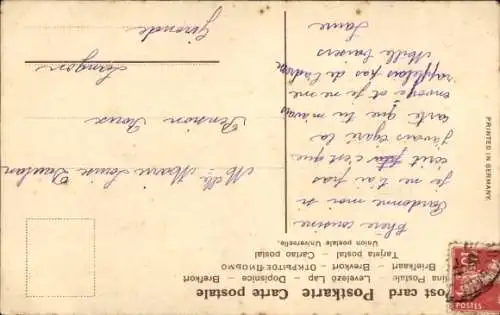 Post card Postkarte Carte postale
Postale – Levelező Lap – Dopisnice – Brefkort
Briefkaart – Brevkort – ОТКРЫТОЕ ПИСЬМО
Tarjeta postal – Cartao postal
Union postale Universelle.
Chère cousine
Pardonne moi si
je ne t'ai pas
écrit c'est que
j'avais égaré la
carte que tu m'avais
envoyé et je ne me
rappelais pas de l'adresse
Mille baisers
Laure
Melle Marie Louise
Pension Roux
Langon
Gironde
PRINTED IN GERMANY.
POSTES